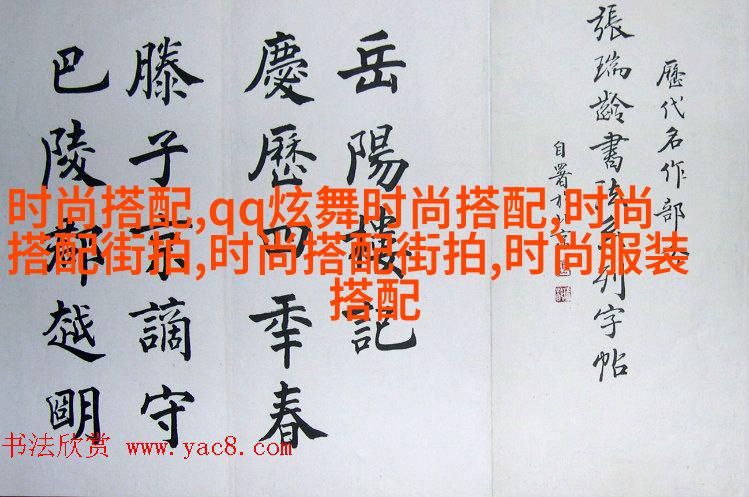 歷代名作部
張瑞齡書法系列字帖
自署於
岳陽樓記
慶歷四年春
滕子京謫守
巴陵郡越明
时尚搭配,qq炫舞时尚搭配,时尚
搭配街拍,时尚搭配街拍,时尚服装
搭配
书法欣赏 www.yac8.com